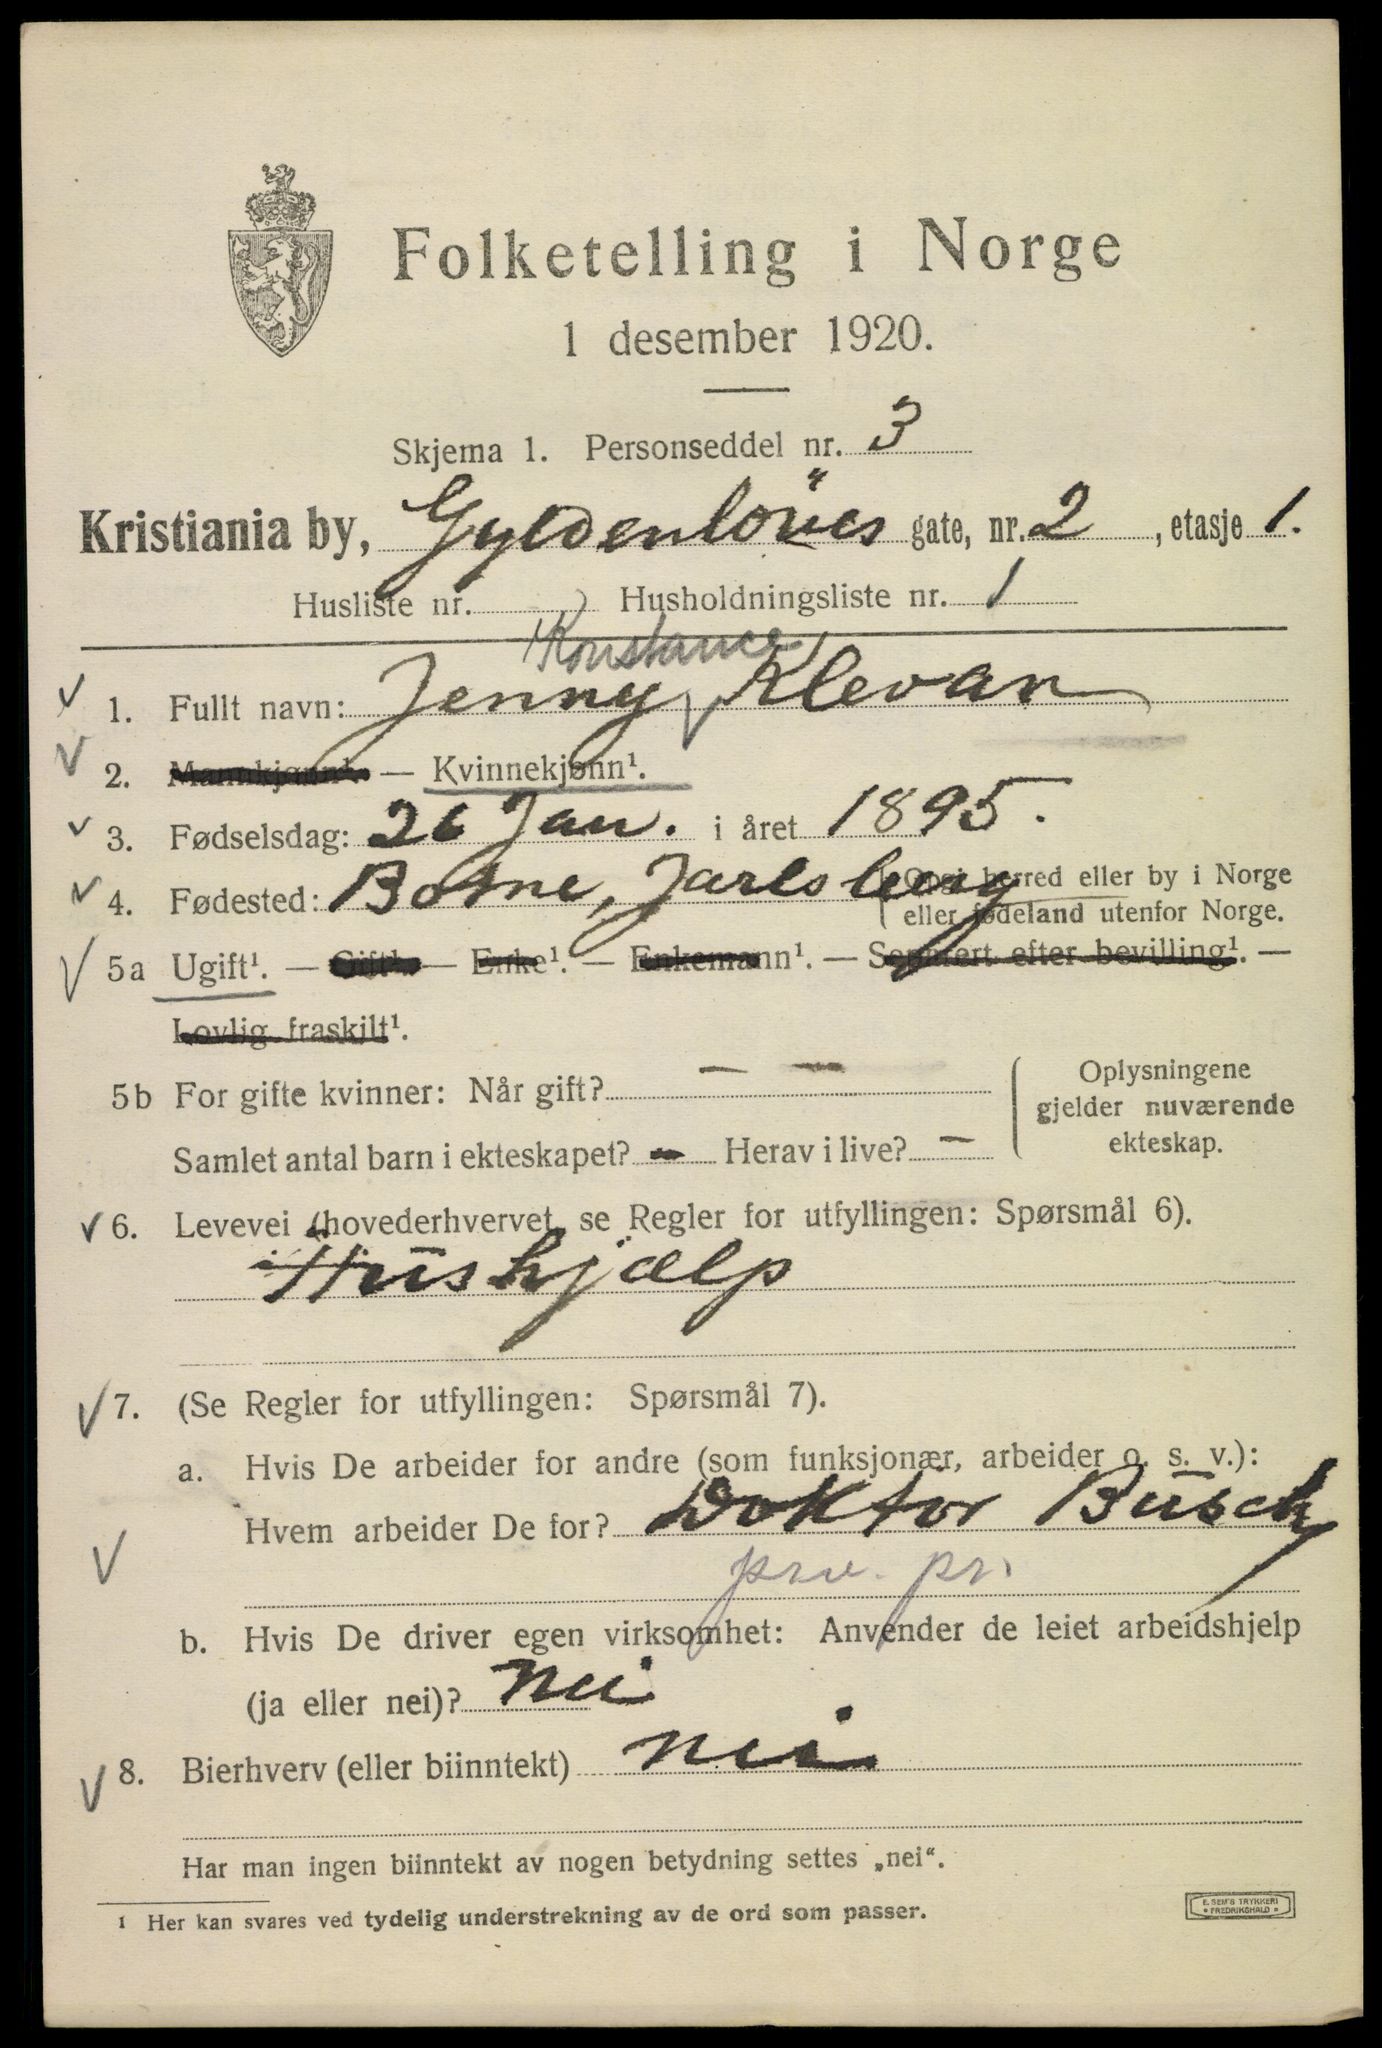 Folketelling i Norge
1 desember 1920.
Skjema 1. Personseddel nr. 3
Kristiania by, Gyldenlöves gate, nr. 2, etasje 1.
Husliste nr. Husholdningsliste nr. 1
Konstance
1. Fullt navn: Jenny Klevan
2. Mannkjønn¹. — Kvinnekjønn¹.
3. Fødselsdag: 26 Jan. i året 1895.
4. Fødested: Borne, Jarlsberg Opgi herred eller by i Norge
eller fødeland utenfor Norge.
5a Ugift¹. — Gift¹. — Enke¹. — Enkemann¹. — Separert efter bevilling¹. —
Lovlig fraskilt¹.
5b For gifte kvinner: Når gift? —
Oplysningene gjelder nuværende ekteskap.
Samlet antal barn i ekteskapet? — Herav i live? —
6. Levevei (hovederhvervet, se Regler for utfyllingen: Spørsmål 6).
Hushjælp
7. (Se Regler for utfyllingen: Spørsmål 7).
a. Hvis De arbeider for andre (som funksjonær, arbeider o. s. v.):
Hvem arbeider De for? Doktor Busch
prv. pr.
b. Hvis De driver egen virksomhet: Anvender de leiet arbeidshjelp
(ja eller nei)? Nei
8. Bierhverv (eller biinntekt) nei
Har man ingen biinntekt av nogen betydning settes „nei“.
1 Her kan svares ved tydelig understrekning av de ord som passer.
E. SEM'S TRYKKERI
FREDRIKSHALD